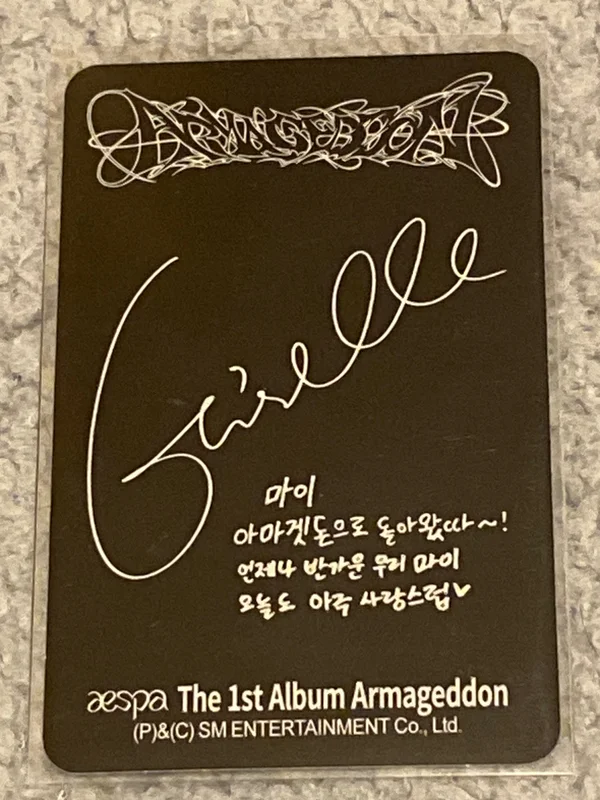 ARMAGEDDON
Giselle
마이
아마겟돈으로 돌아왔따~!
언제나 반가운 우리 마이
오늘도 아주 사랑스럽♥
aespa The 1st Album Armageddon
(P)&(C) SM ENTERTAINMENT Co., Ltd.